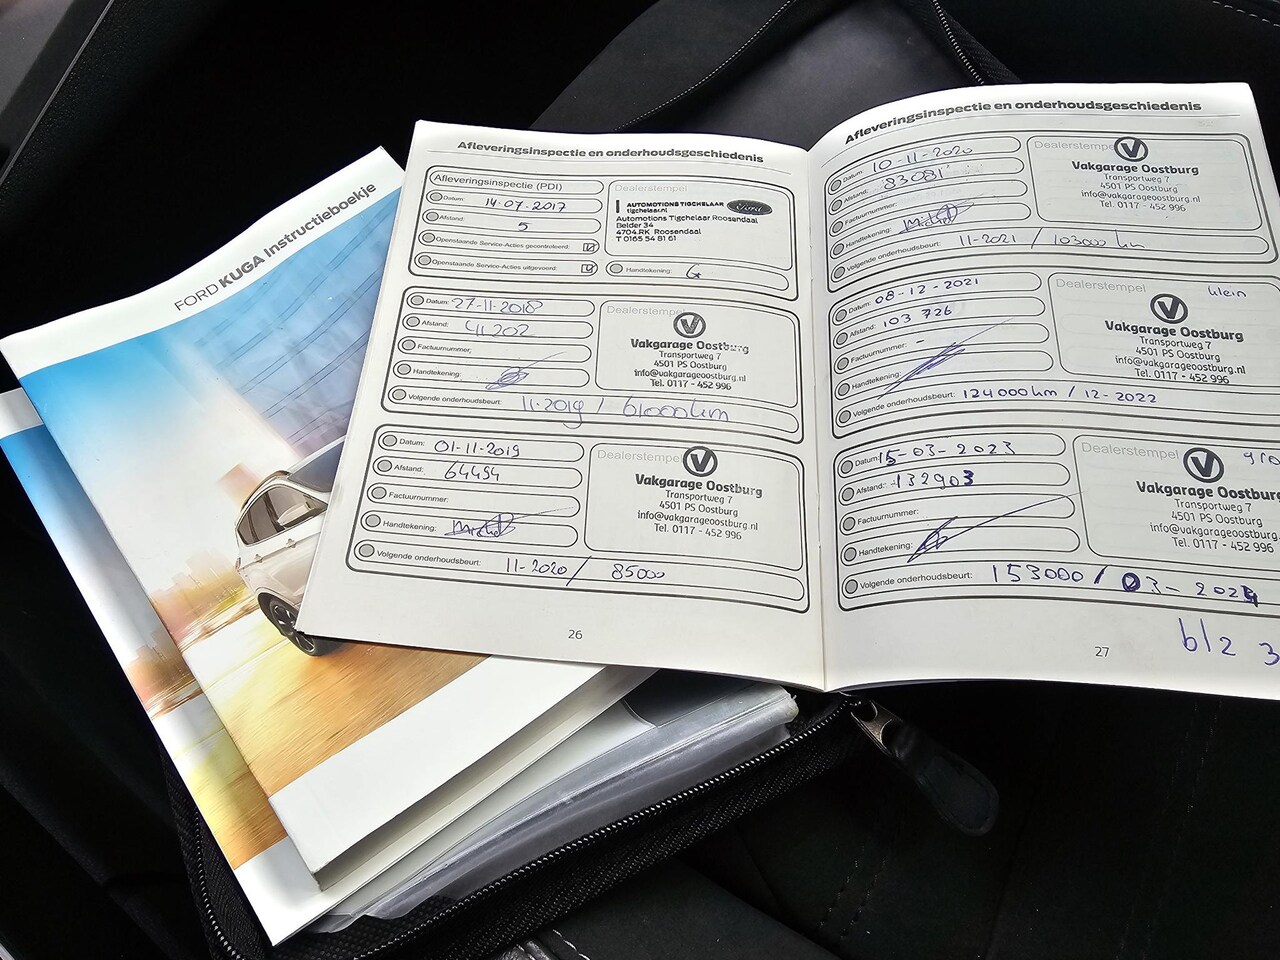 FORD KUGA Instructieboekje
Afleveringsinspectie en onderhoudsgeschiedenis
Afleveringsinspectie (PDI)
Datum: 14-07-2017
Afstand: 5
Openstaande Service-Acties gecontroleerd:
Openstaande Service-Acties uitgevoerd:
Dealerstempel
AUTOMOTIONS TIGCHELAAR
tigchelaar.nl
Ford
Automotions Tigchelaar Roosendaal
Belder 34
4704 RK Roosendaal
T 0165 54 81 61
Handtekening:
Datum: 27-11-2018
Afstand: 41202
Factuurnummer:
Handtekening:
Volgende onderhoudsbeurt: 11-2019 / 61000km
Dealerstempel
Vakgarage Oostburg
Transportweg 7
4501 PS Oostburg
info@vakgarageoostburg.nl
Tel. 0117 - 452 996
Datum: 01-11-2019
Afstand: 64494
Factuurnummer:
Handtekening:
Volgende onderhoudsbeurt: 11-2020 / 85000
Dealerstempel
Vakgarage Oostburg
Transportweg 7
4501 PS Oostburg
info@vakgarageoostburg.nl
Tel. 0117 - 452 996
26
Afleveringsinspectie en onderhoudsgeschiedenis
Datum: 10-11-2020
Afstand: 83081
Factuurnummer:
Handtekening:
Volgende onderhoudsbeurt: 11-2021 / 103000 km
Dealerstempel
Vakgarage Oostburg
Transportweg 7
4501 PS Oostburg
info@vakgarageoostburg.nl
Tel. 0117 - 452 996
Datum: 08-12-2021
Afstand: 103 726
Factuurnummer: -
Handtekening:
Volgende onderhoudsbeurt: 124000km / 12-2022
Dealerstempel klein
Vakgarage Oostburg
Transportweg 7
4501 PS Oostburg
info@vakgarageoostburg.nl
Tel. 0117 - 452 996
Datum: 15-03-2023
Afstand: 132903
Factuurnummer:
Handtekening:
Volgende onderhoudsbeurt: 153000 / 03-2024
Dealerstempel
Vakgarage Oostburg
Transportweg 7
4501 PS Oostburg
info@vakgarageoostburg.n
Tel. 0117 - 452 996
27
blz 3